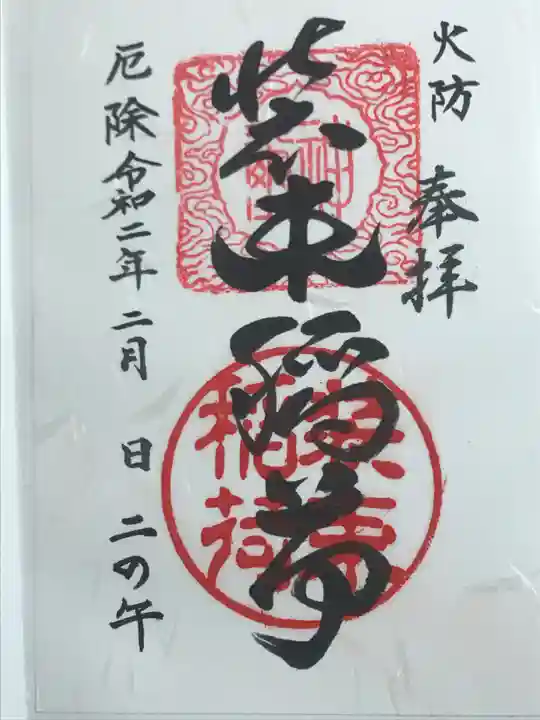 火防 奉拝
装束稲荷
厄除 令和二年 二月 日 二の午